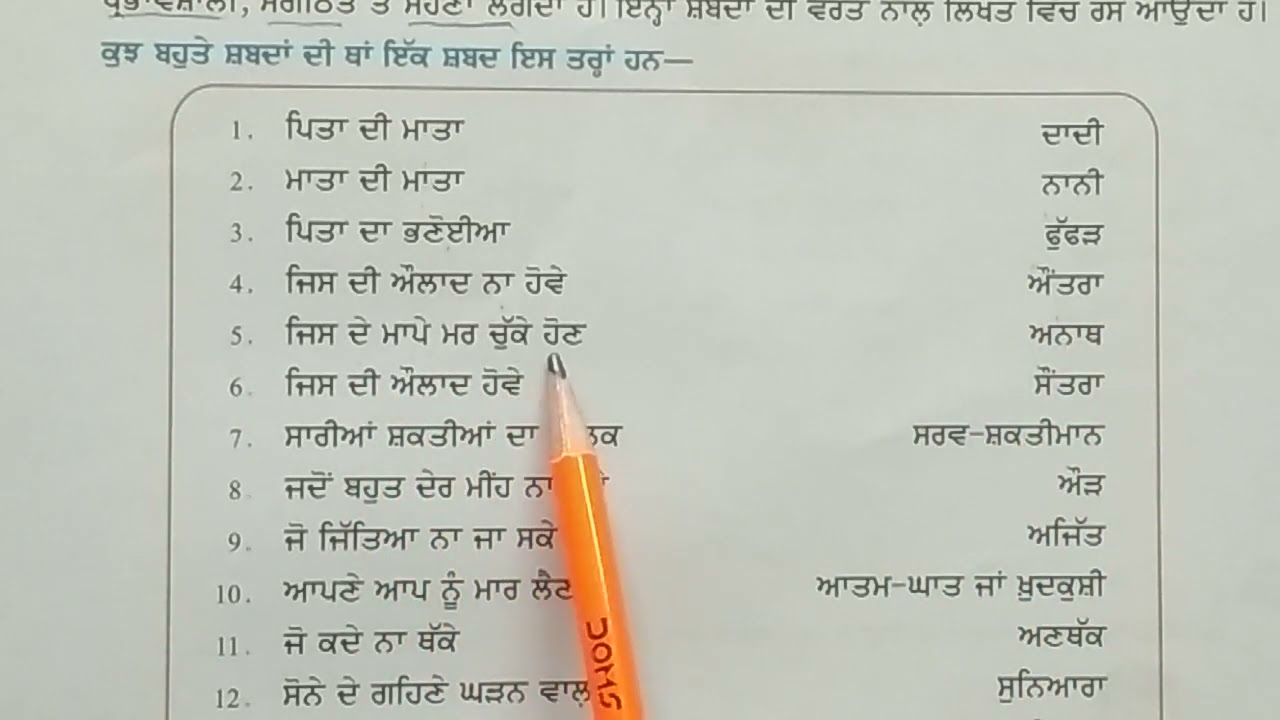 ਪ੍ਰਭਾਵਸ਼ਾਲੀ, ਸੰਗਠਿਤ ਤੇ ਸੋਹਣਾ ਲੱਗਦਾ ਹੈ। ਇਨ੍ਹਾਂ ਸ਼ਬਦਾਂ ਦੀ ਵਰਤੋਂ ਨਾਲ਼ ਲਿਖਤ ਵਿੱਚ ਰਸ ਆਉਂਦਾ ਹੈ।
ਕੁਝ ਬਹੁਤੇ ਸ਼ਬਦਾਂ ਦੀ ਥਾਂ ਇੱਕ ਸ਼ਬਦ ਇਸ ਤਰ੍ਹਾਂ ਹਨ—
1. ਪਿਤਾ ਦੀ ਮਾਤਾ ਦਾਦੀ
2. ਮਾਤਾ ਦੀ ਮਾਤਾ ਨਾਨੀ
3. ਪਿਤਾ ਦਾ ਭਣੋਈਆ ਫੁੱਫੜ
4. ਜਿਸ ਦੀ ਔਲਾਦ ਨਾ ਹੋਵੇ ਔਂਤਰਾ
5. ਜਿਸ ਦੇ ਮਾਪੇ ਮਰ ਚੁੱਕੇ ਹੋਣ ਅਨਾਥ
6. ਜਿਸ ਦੀ ਔਲਾਦ ਹੋਵੇ ਸੌਂਤਰਾ
7. ਸਾਰੀਆਂ ਸ਼ਕਤੀਆਂ ਦਾ ਸਰਵ-ਸ਼ਕਤੀਮਾਨ
8. ਜਦੋਂ ਬਹੁਤ ਦੇਰ ਮੀਂਹ ਨਾ ਔੜ
9. ਜੋ ਜਿੱਤਿਆ ਨਾ ਜਾ ਸਕੇ ਅਜਿੱਤ
10. ਆਪਣੇ ਆਪ ਨੂੰ ਮਾਰ ਲੈਣ ਆਤਮ-ਘਾਤ ਜਾਂ ਖ਼ੁਦਕੁਸ਼ੀ
11. ਜੋ ਕਦੇ ਨਾ ਥੱਕੇ ਅਣਥੱਕ
12. ਸੋਨੇ ਦੇ ਗਹਿਣੇ ਘੜਨ ਵਾਲ਼ ਸੁਨਿਆਰਾ
DOMS